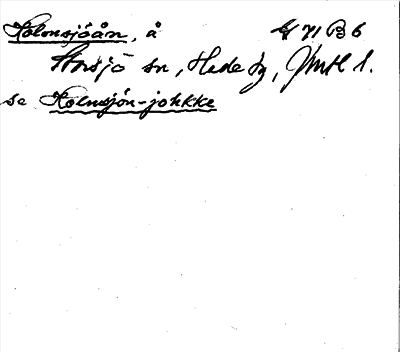 Kolmsjöån, å G 71 B 6
Storsjö sn, Hede tg, Jmtl l.
se Kolmsjön-johkke